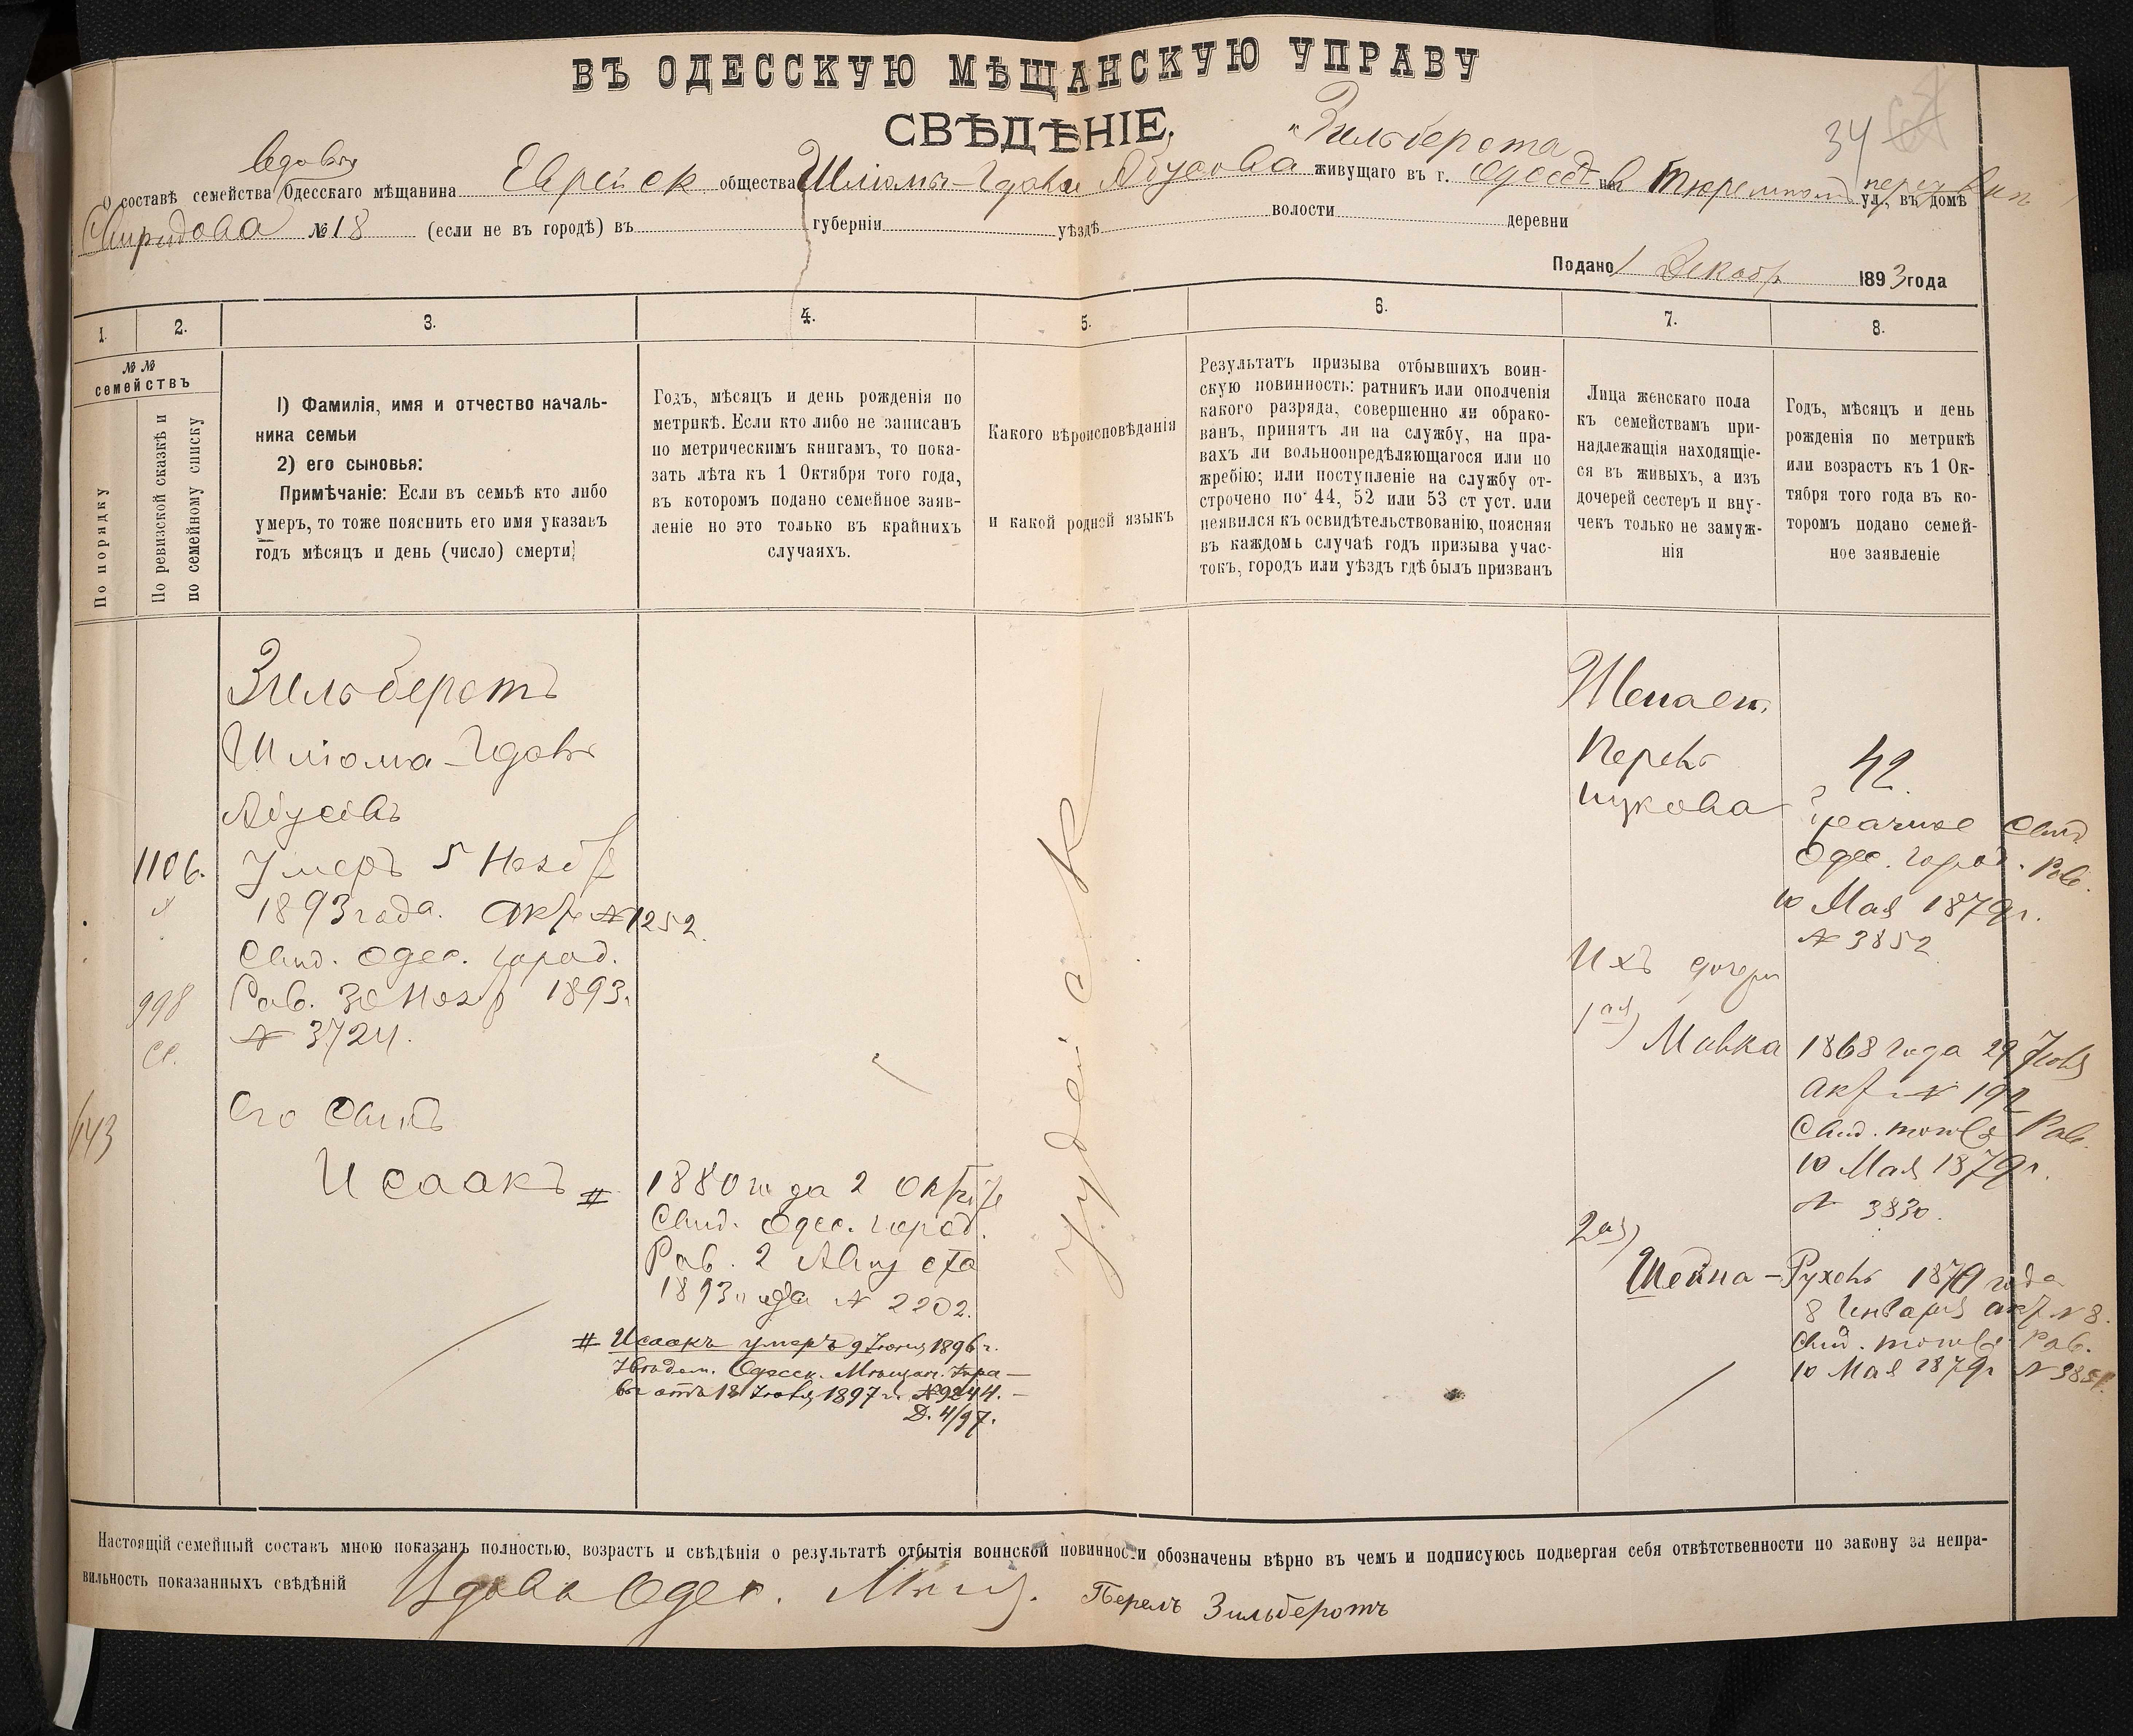 ВЪ ОДЕССКУЮ МѢЩАНСКУЮ УПРАВУ
СВѢДѢНІЕ.
34
вдовы
Зильберота
О составѣ семейства Одесскаго мѣщанина Еврейск общества Шліомы-Идовы Абусова живущаго въ г. Одессѣ на Тюремной ул., въ домѣ
Свиридова № 18 (если не въ городѣ) въ губерніи уѣздѣ волости деревни
Подано 1 Декабр 1893 года
1. 2. 3. 4. 5. 6. 7. 8.
№ № семействъ
По порядку
По ревизской сказкѣ и
по семейному списку
1) Фамилія, имя и отчество началь-
ника семьи
2) его сыновья:
Примѣчаніе: Если въ семьѣ кто либо
умеръ, то тоже пояснить его имя указавъ
годъ мѣсяцъ и день (число) смерти;
Годъ, мѣсяцъ и день рожденія по
метрикѣ. Если кто либо не записанъ
по метрическимъ книгамъ, то пока-
зать лѣта къ 1 Октября того года,
въ которомъ подано семейное заяв-
леніе но это только въ крайнихъ
случаяхъ.
Какого вѣроисповѣданія
и какой родной языкъ
Результатъ призыва отбывшихъ воин-
скую повинность: ратникъ или ополченія
какого разряда, совершенно ли обрако-
ванъ, принятъ ли на службу, на пра-
вахъ ли вольноопредѣляющагося или по
жребію; или поступленіе на службу от-
строчено по 44, 52 или 53 ст уст. или
неявился къ освидѣтельствованію, поясняя
въ каждомъ случаѣ годъ призыва учас-
токъ, городъ или уѣздъ гдѣ былъ призванъ
Лица женскаго пола
къ семействамъ при-
надлежащія находящіе-
ся въ живыхъ, а изъ
дочерей сестеръ и вну-
чекъ только не замуж-
нія
Годъ, мѣсяцъ и день
рожденія по метрикѣ
или возрастъ къ 1 Ок-
тября того года въ ко-
торомъ подано семей-
ное заявленіе
1106.
998
643
Зильберотъ
Шліома-Идовъ
Абусовъ
Умеръ 5 Ноябр
1893 года. акт № 1252.
Свид. Одес. город.
Рав. 30 Ноябр 1893.
№ 3724.
Его Сынъ
Исаакъ #
1880 года 2 Октябр
Свид. Одес. город.
Рав. 2 Августа
1893 года № 2202.
# Исаакъ умеръ 9 Іюня 1896 г.
Увѣдом. Одесск. Мѣщан. Упра-
вы отъ 18 Іюня 1897 г. № 9244. -
Д. 4/97.
Іудейск
Жена ея
Перель
Ицкова
42.
брачное Свид
Одес. город. Рав.
10 Мая 1879 г.
№ 3852
Ихъ дочери
1ая)
Мавка
1868 года 29 Іюня
акт № 192
Свид. того же Рав.
10 Мая 1879 г.
№ 3830.
2ая)
Шейна-Рухель 1879 года
8 Января акт № 8.
Свид. того же Рав.
10 Мая 1879 г № 3851.
Настоящій семейный составъ мною показанъ полностью, возрастъ и свѣдѣнія о результатѣ отбытія воинской повинности обозначены вѣрно въ чемъ и подписуюсь подвергая себя отвѣтственности по закону за непра-
вильность показанныхъ свѣдѣній Вдова Одес. Мѣщ. Перель Зильберотъ